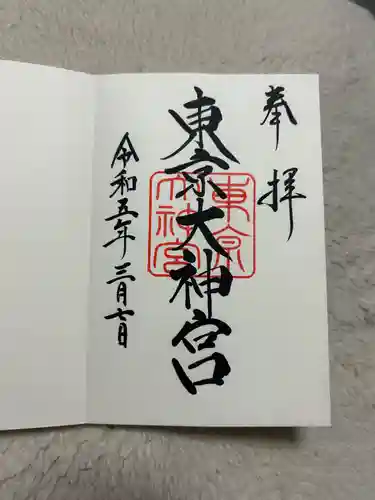 奉拝
東京大神宮
東京大神宮
令和五年三月七日